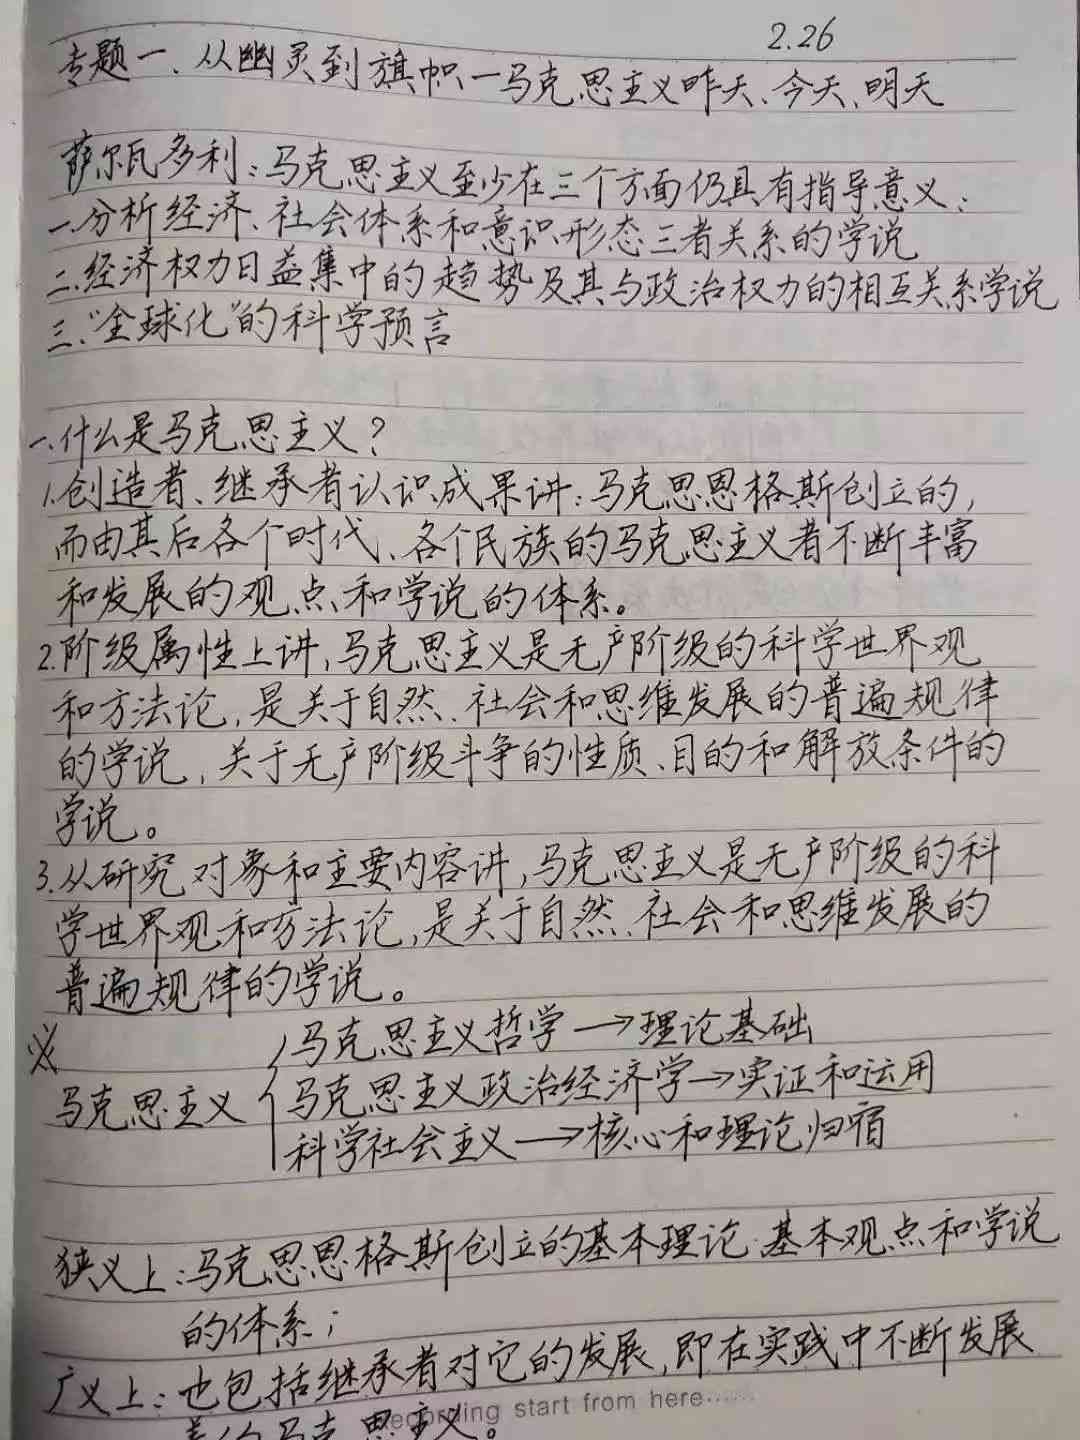 2.26
专题一、从幽灵到旗帜—马克思主义昨天、今天、明天
萨尔瓦多利：马克思主义至少在三个方面仍具有指导意义：
一.分析经济、社会体系和意识形态三者关系的学说
二.经济权力日益集中的趋势及其与政治权力的相互关系学说
三.“全球化”的科学预言
一、什么是马克思主义？
1.创造者、继承者认识成果讲：马克思恩格斯创立的，
而由其后各个时代、各个民族的马克思主义者不断丰富
和发展的观点和学说的体系。
2.阶级属性上讲，马克思主义是无产阶级的科学世界观
和方法论，是关于自然、社会和思维发展的普遍规律
的学说，关于无产阶级斗争的性质、目的和解放条件的
学说。
3.从研究对象和主要内容讲，马克思主义是无产阶级的科
学世界观和方法论，是关于自然、社会和思维发展的
普遍规律的学说。
必
马克思主义哲学→理论基础
马克思主义 { 马克思主义政治经济学→实证和运用
科学社会主义→核心和理论归宿
狭义上：马克思恩格斯创立的基本理论、基本观点和学说
的体系；
广义上：也包括继承者对它的发展，即在实践中不断发展
着的马克思主义。
Recording start from here······